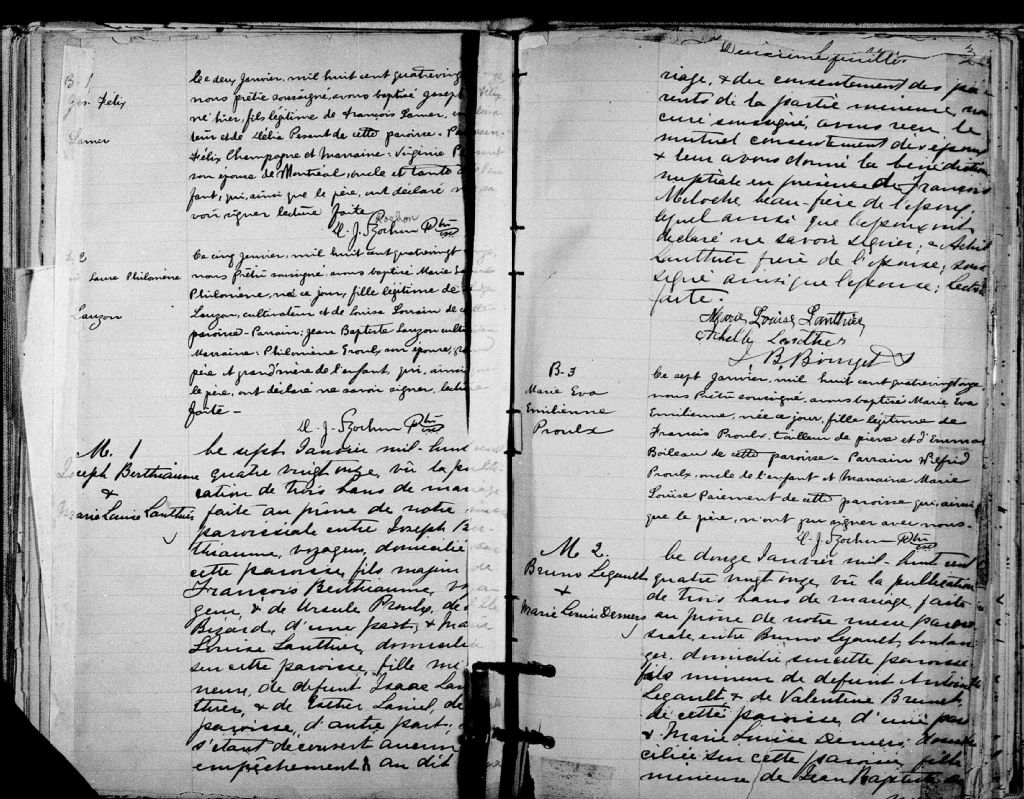 B-1
Jos. Félix
Lamer
Le deux Janvier, mil huit cent quatrevingt
nous prêtre soussigné, avons baptisé Joseph Félix
né hier, fils légitime de François Lamer,
et de Délia Pesant de cette paroisse - Parrain
Félix Champagne et Marraine: Virginie
son épouse de Montréal, oncle et tante de
fant, qui, ainsi que le père, ont déclaré ne sa
voir signer lecture faite
Rochon
M. J. Rochon Ptre
2
Laura Philomène
Lauzon
Le cinq Janvier, mil huit cent quatrevingt
nous Prêtre soussigné avons baptisé Marie
Philomène, née ce jour, fille légitime de
Lauzon, cultivateur et de Louisa Lorrain de cette
paroisse - Parrain: Jean Baptiste Lauzon
Marraine: Philomène Proulx, son épouse,
père et grand'mère de l'enfant, qui, ainsi
le père, ont déclaré ne savoir signer, lecture
faite -
M. J. Rochon Ptre
M. 1
Joseph Berthiaume
&
Marie Louise Lanthier
Le sept Janvier mil-huit
quatre vingt onze, vû la publi
cation de trois bans de mariage
faite au prône de notre
paroissiale entre Joseph Ber
thiaume, voyageur, domicilié sur
cette paroisse, fils majeur de
François Berthiaume, voya
geur, & de Ursule Proulx, de
Bizard, d'une part, & Marie
Louise Lanthier, domiciliée
sur cette paroisse, fille mi
neure, de défunt Isaac Lan
thier, & de Esther Laniel, de
paroisse, d'autre part,
s'étant découvert aucun
empêchement au dit
Deuxième feuillet
riage, & du consentement des pa
rents de la partie mineure, nous
curé soussigné, avons reçu le
mutuel consentement des époux
& leur avons donné la bénédiction
nuptiale en présence de François
Meloche, beau-frère de l'époux;
lequel ainsi que l'époux ont
déclaré ne savoir signer; &
Lanthier frère de l'épouse; sous
signé ainsi que l'épouse; lecture
faite.
Marie Louise Lanthier
Lanthier
J. B. Bourget
B-3
Marie Eva
Emilienne
Proulx
Le sept Janvier, mil huit cent quatrevingt onze
nous Prêtre soussigné, avons baptisé Marie Eva
Emilienne, née ce jour, fille légitime de
Francis Proulx, tailleur de pierre et d'Emma
Boileau de cette paroisse - Parrain Wilfrid
Proulx, oncle de l'enfant et Marraine Marie
Louise Paiement de cette paroisse qui, ainsi
que le père, n'ont pu signer avec nous-
M. J. Rochon Ptre
M 2.
Bruno Legault
&
Marie Louise Demers
Le douze Janvier mil-huit cent
quatre vingt onze, vû la publication
de trois bans de mariage, faite
au prône de notre messe parois
siale, entre Bruno Legault, boulan
ger, domicilié sur cette paroisse,
fils mineur de défunt Antoine
Legault, & de Valentine Brunet
de cette paroisse, d'une part
& Marie Louise Demers, domi
ciliée sur cette paroisse, fille
mineure de Jean Baptiste